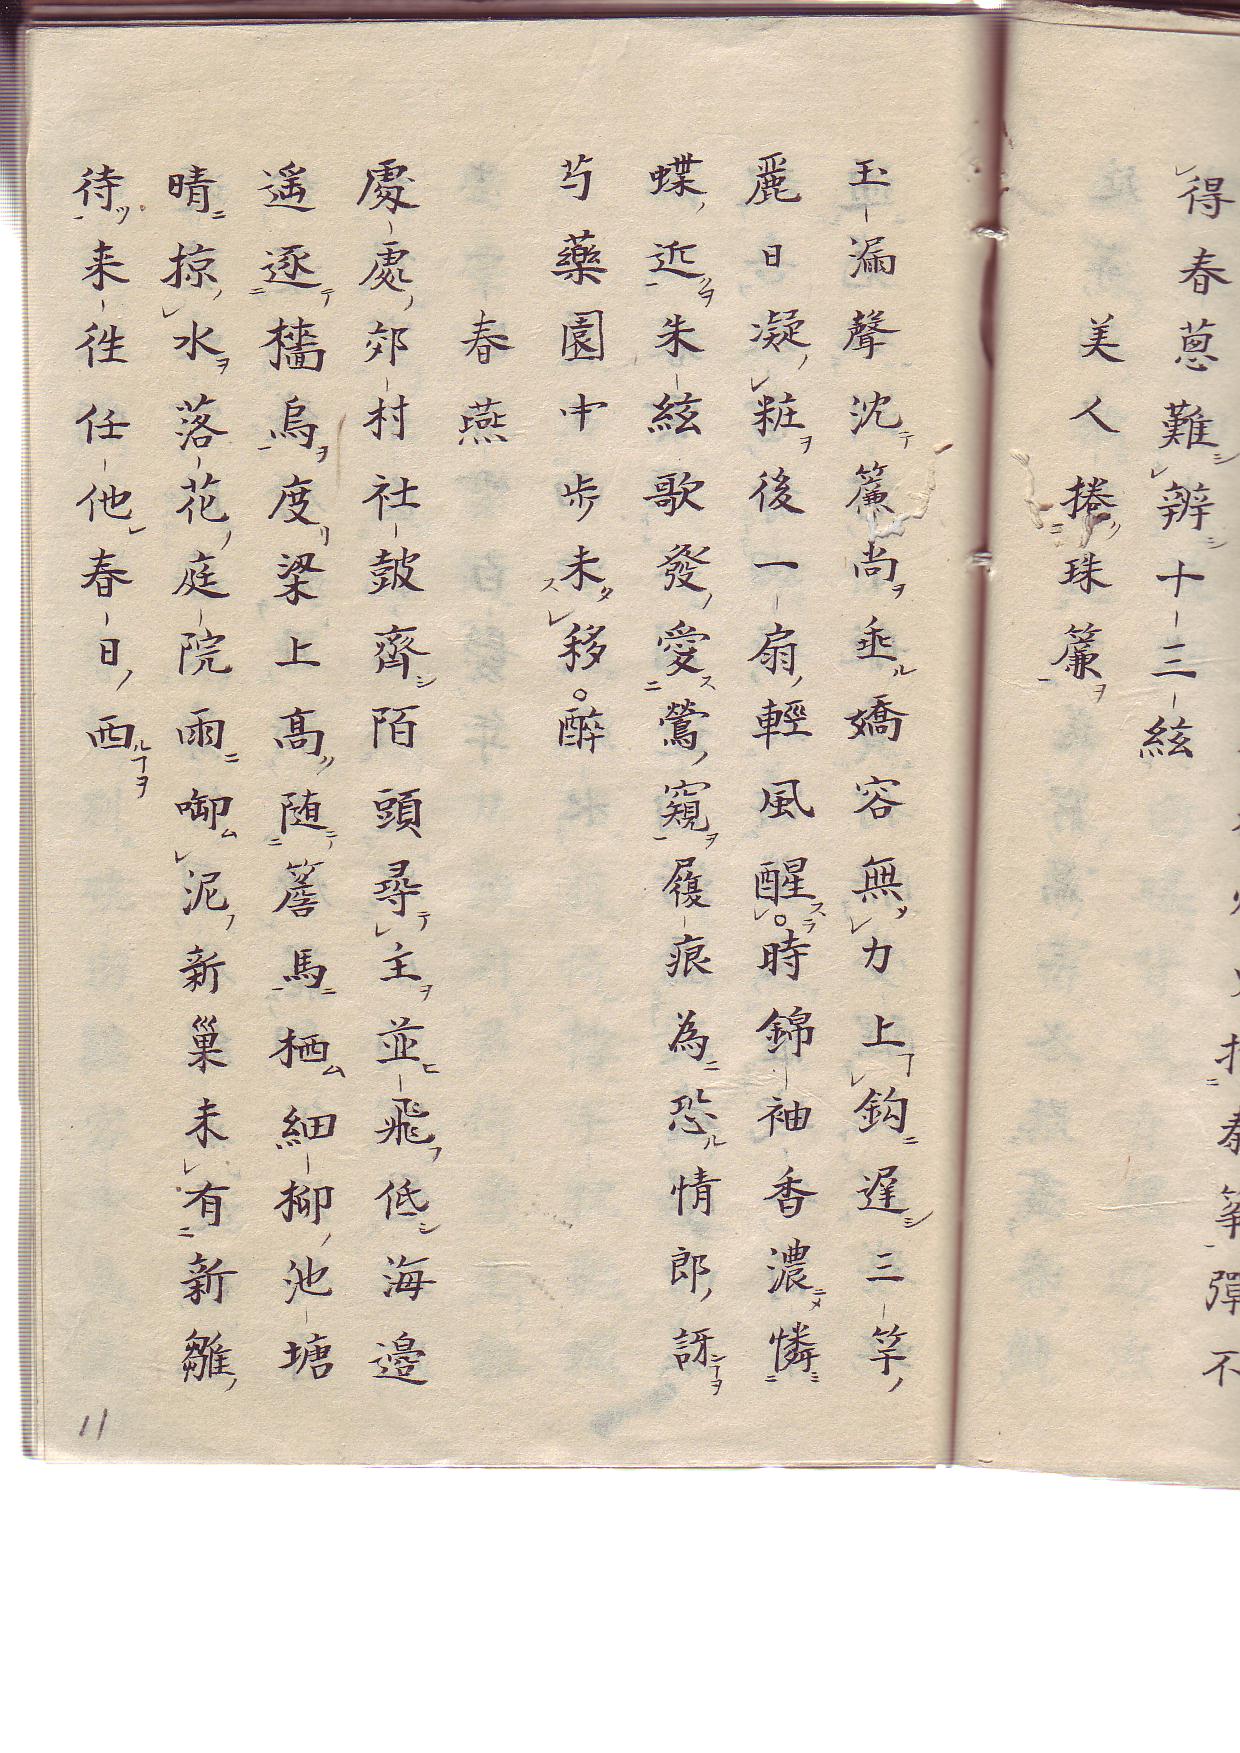 箏彈不
得春蔥難辨十三絃
美人捲珠簾
玉漏聲沈簾尚垂嬌容無力上鈎遅三竿
麗日凝粧後一扇輕風醒。時錦袖香濃憐
蝶近朱絃歌發愛鶯窺履痕為恐情郎訝
芍藥園中歩未移。醉
春燕
處處郊村社皷齊陌頭尋主並飛低海邊
遥逐檣烏度梁上高随簷馬栖細柳池塘
晴掠水落花庭院雨啣泥新巢未有新雛
待来徃任他春日西
11